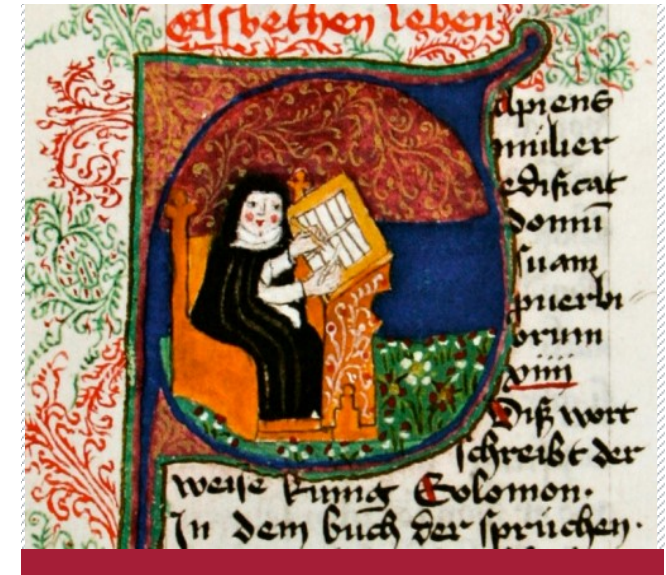 elsbethen leben
apiens
mulier
edificat
domū
suam
puerbi
orum
xiiii
Diß wort
schreibt der
weise kunig Solomon.
In dem buch der spruchen.